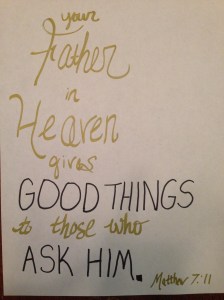 your
Father
in
Heaven
gives
GOOD THINGS
to those who
ASK HIM.
Matthew 7:11